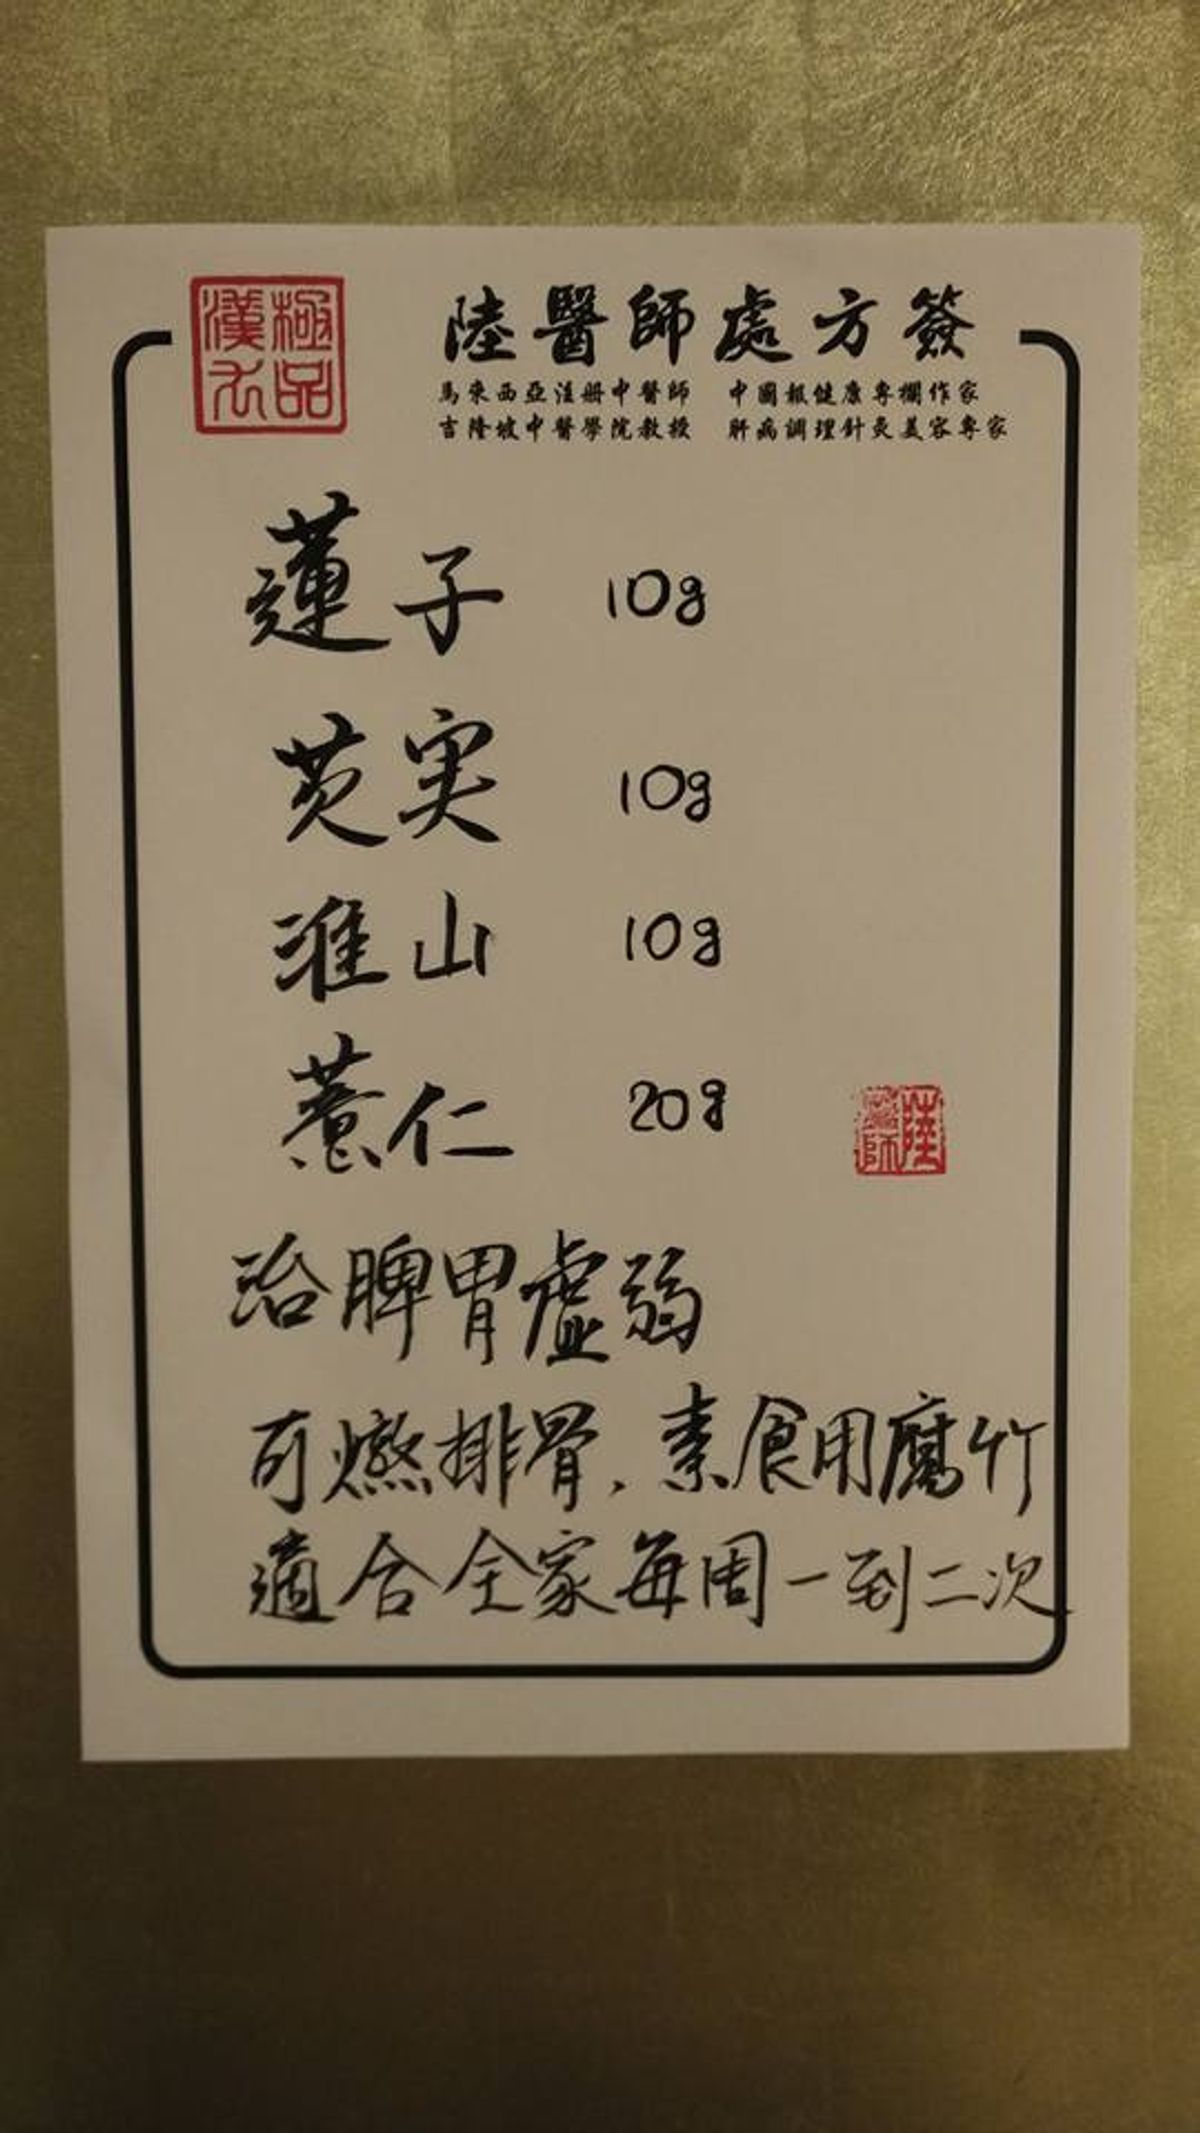 極品
漢方
陸醫師處方簽
馬來西亞注册中醫師 中國報健康專欄作家
吉隆坡中醫學院教授 肝病調理針灸美容專家
蓮子 10g
芡实 10g
淮山 10g
薏仁 20g
陸醫師
治脾胃虛弱
可燉排骨、素食用腐竹
適合全家每周一到二次